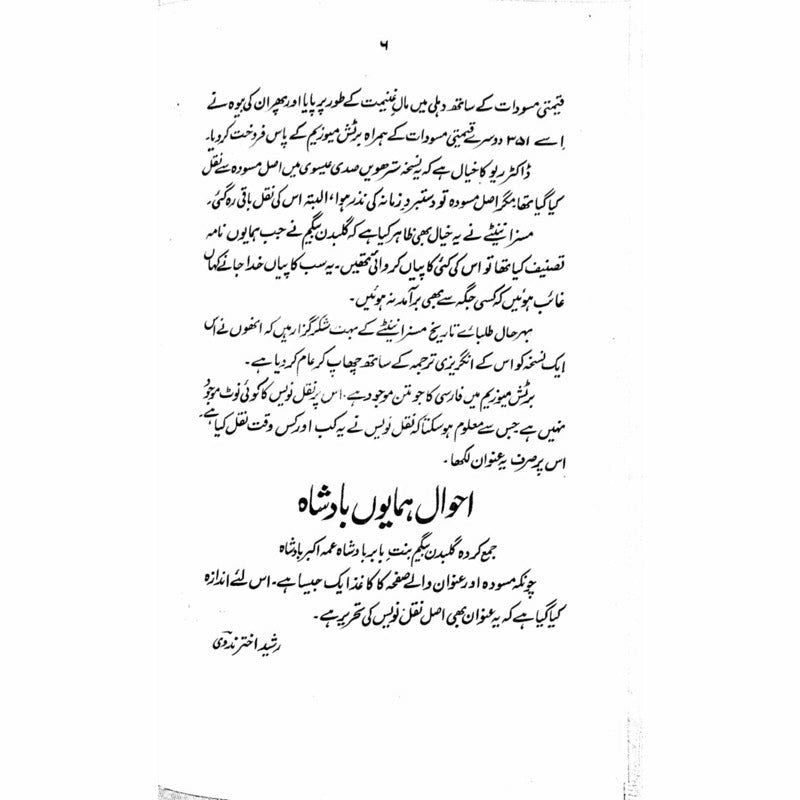 ۶
قیمتی مسودات کے ساتھ دہلی میں مالِ غنیمت کے طور پر پایا اور پھر ان کی بیوہ نے
اِسے ۳۵۱ دوسرے قیمتی مسودات کے ہمراہ برٹش میوزیم کے پاس فروخت کر دیا۔
ڈاکٹر ریو کا خیال ہے کہ یہ نسخہ سترھویں صدی عیسوی میں اصل مسودہ سے نقل
کیا گیا تھا مگر اصل مسودہ تو دستبردِ زمانہ کی نذر ہوا، البتہ اس کی نقل باقی رہ گئی۔
مسز اینیٹے نے یہ خیال بھی ظاہر کیا ہے کہ گلبدن بیگم نے جب ہمایوں نامہ
تصنیف کیا تھا تو اس کی کئی کاپیاں کروائی تھیں۔ یہ سب کاپیاں خدا جانے کہاں
غائب ہوئیں کہ کسی جگہ سے بھی برآمد نہ ہوئیں۔
بہر حال طلبائے تاریخ مسز اینیٹے کے بہت شکر گزار ہیں کہ انھوں نے اس
ایک نسخہ کو اس کے انگریزی ترجمہ کے ساتھ چھاپ کر عام کر دیا ہے۔
برٹش میوزیم میں فارسی کا جو متن موجود ہے۔ اس پر نقل نویس کا کوئی نوٹ موجود
نہیں ہے جس سے معلوم ہو سکتا کہ نقل نویس نے یہ کب اور کس وقت نقل کیا ہے۔
اس پر صرف یہ عنوان لکھا۔
احوال ہمایوں بادشاہ
جمع کردہ گلبدن بیگم بنتِ بابر بادشاہ عمہ اکبر بادشاہ
چونکہ مسودہ اور عنوان والے صفحہ کا کاغذ ایک جیسا ہے۔ اس لئے اندازہ
کیا گیا ہے کہ یہ عنوان بھی اصل نقل نویس کی تحریر ہے۔
رشید اختر ندوی